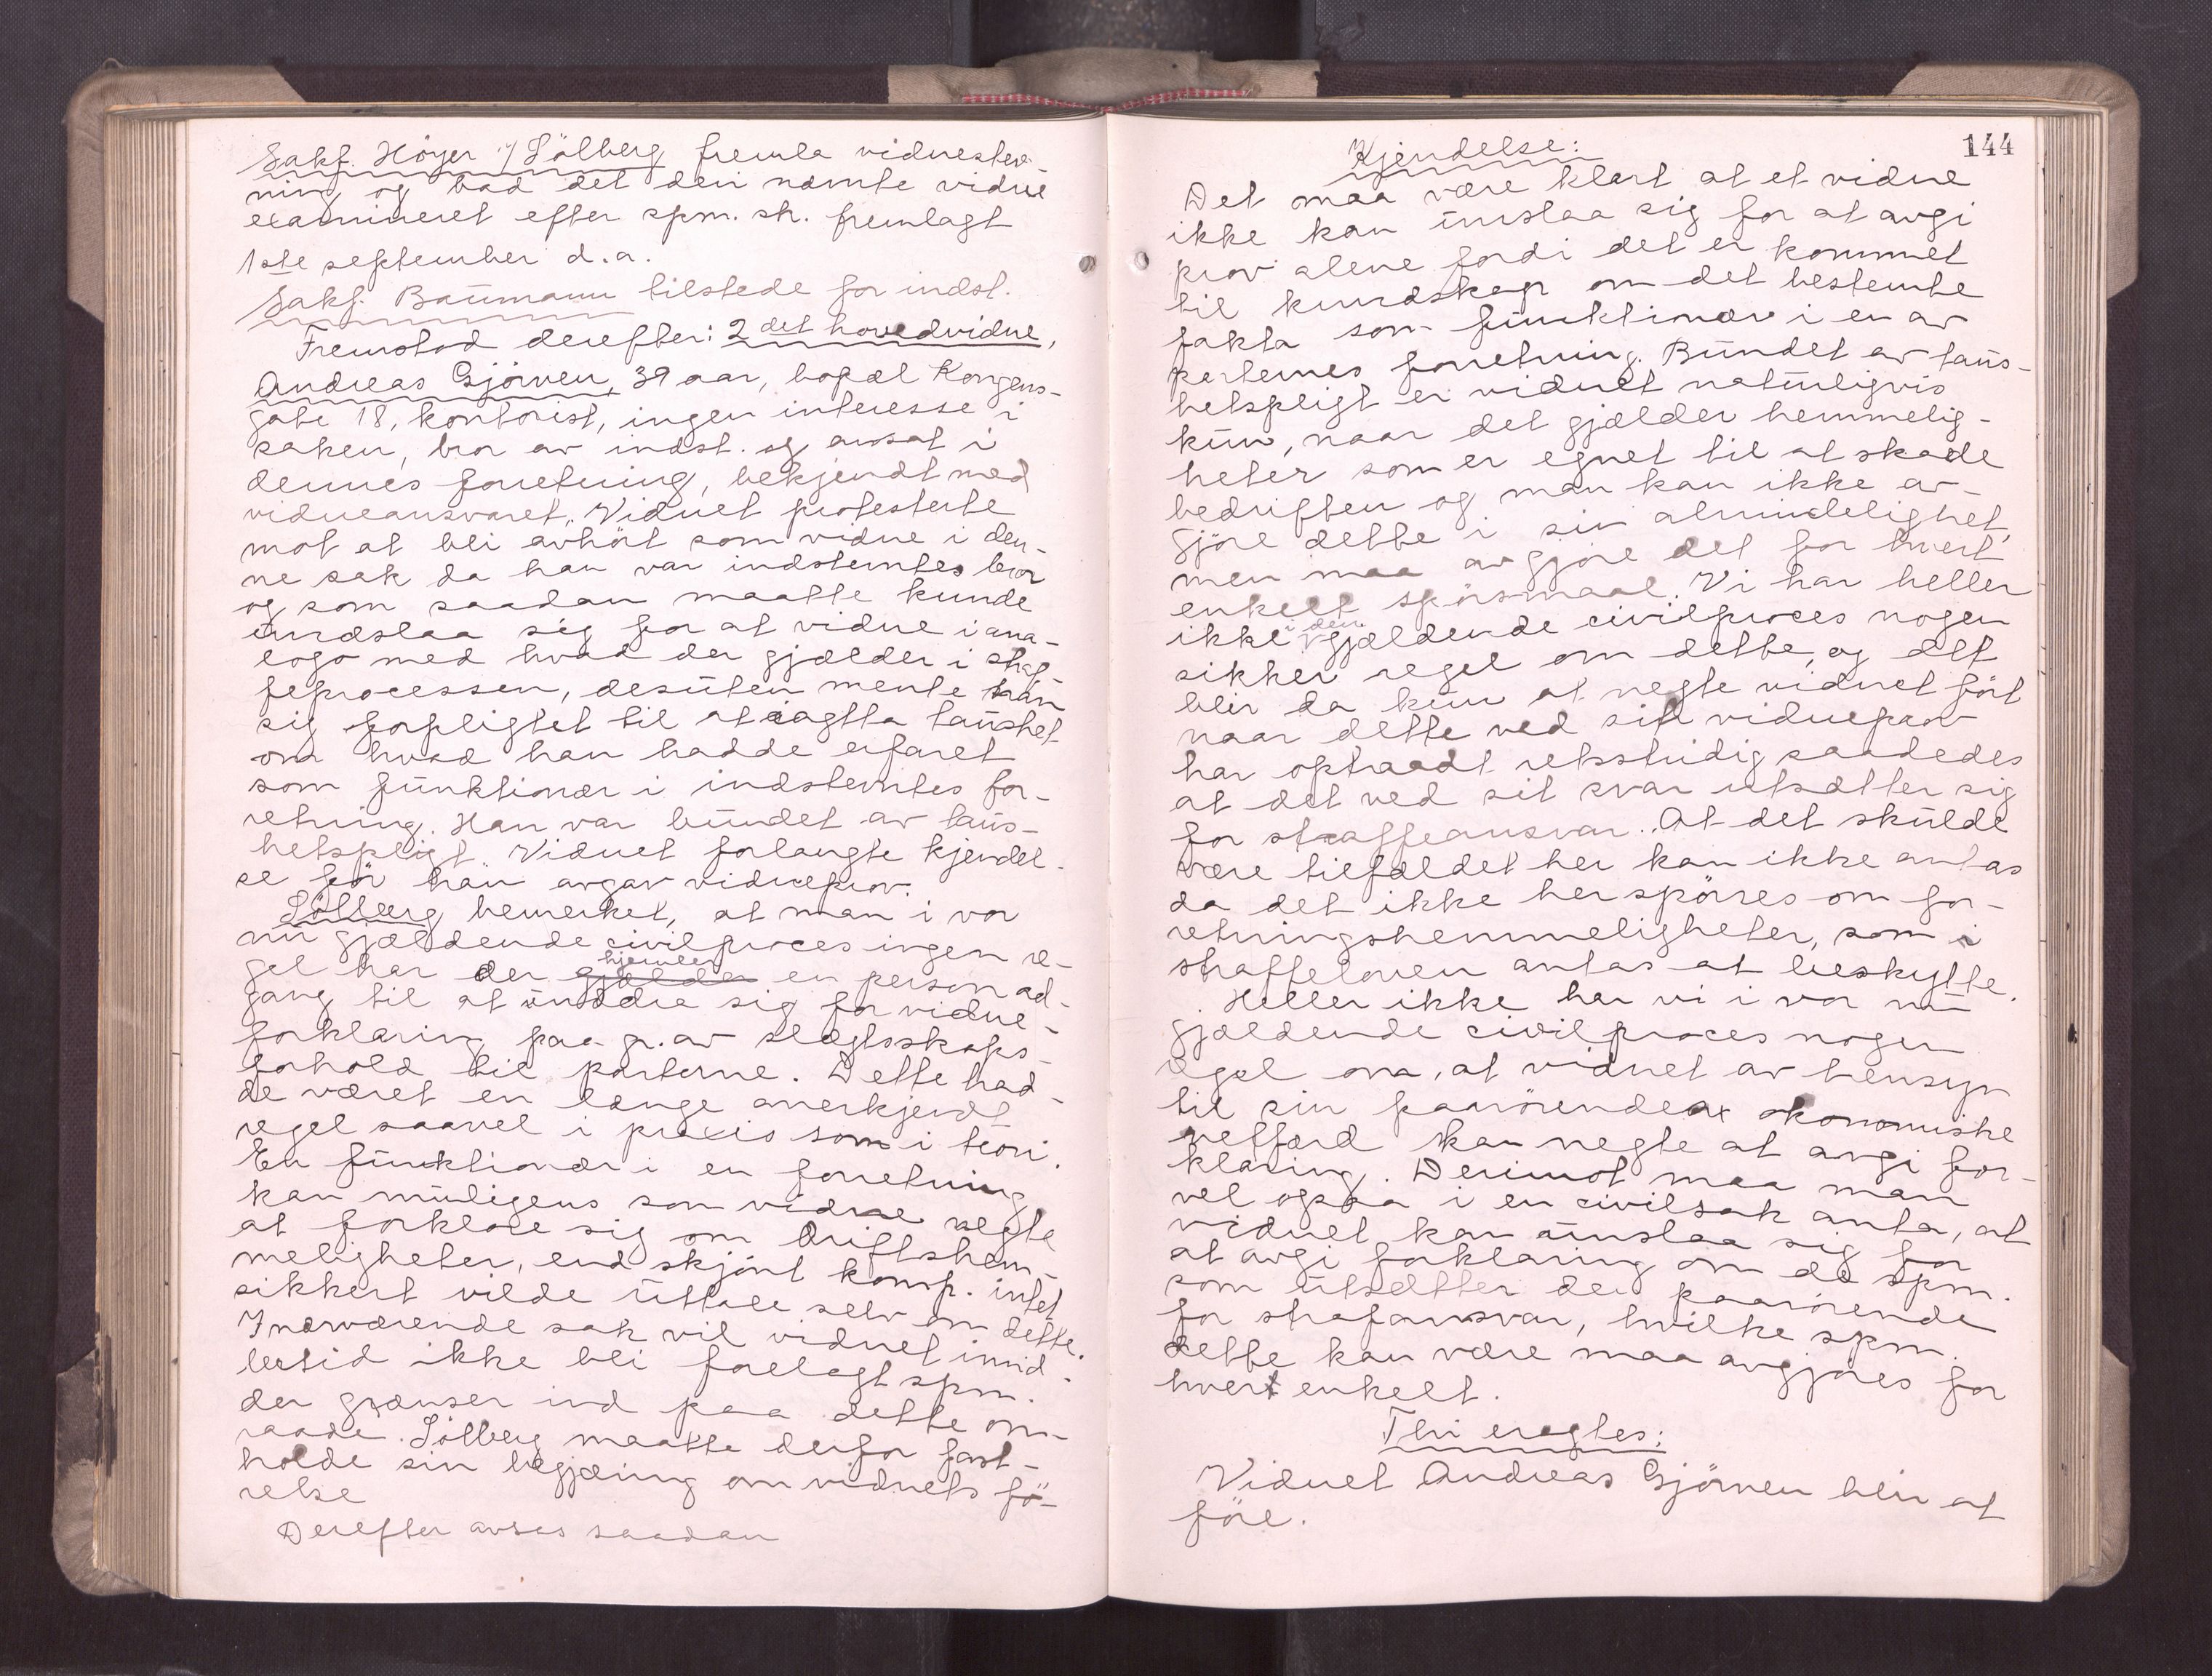 Sakf. Höyer v/ Sölberg fremla vidnestev-
ning og bad det deri nævnte vidne
examineret efter spm. sk. fremlagt
1ste september d.a.
Sakf. Baumann tilstede for indst.
Fremstod derefter: 2det hovedvidne,
Andreas Gjörven, 39 aar, bopæl Kongens-
gate 18, kontorist, ingen interesse i
saken, bror av indst. og ansat i
dennes forretning, bekjendt med
vidneansvaret. Vidnet protesterte
mot at bli avhört som vidne i den-
ne sak da han var indstevntes bror
og som saadan maatte kunde
undslaa sig for at vidne i ana-
logo med hvad der gjælder i straf-
feprocessen, desuten mente han
sig forpligtet til at iagtta taushet
om hvad han hadde erfaret
som funktionær i indstevntes for-
retning. Han var bundet av taus-
hetspligt. Vidnet forlangte kjendel-
se før han avgav vidneprov.
Sölberg bemerket, at man i vor
nu gjældende civilproces ingen re-
gel har der gjælder hjemler en person ad-
gang til at unddra sig for vidne-
forklaring paa gr. av slegtsskaps-
forhold til parterne. Dette had-
de været en længe anerkjendt
regel saavel i praxis som i teori.
En funktionær i en forretning
kan muligens som vidne negte
at forklare sig om driftshem-
meligheter, end skjönt komp. intet
sikkert vilde uttale selv om dette.
I nærværende sak vil vidnet imid-
lertid ikke bli forelagt spm.
der grænser ind paa dette om-
raade. Sölberg maatte derfor fast-
holde sin begjæring om vidnets fö-
relse
Derefter avsas saadan
144
Kjendelse:
Det maa være klart at et vidne
ikke kan unslaa sig for at avgi
prov alene fordi det er kommet
til kundskap om det bestemte
fakta som funktionær i en av
parternes forretning. Bundet av taus-
hetspligt er vidnet naturligvis
kun, naar det gjælder hemmelig-
heter som er egnet til at skade
bedriften og man kan ikke av-
gjöre dette i sin almindelighet,
men maa avgjöre det for hvert
enkelt spörsmaal. Vi har heller
ikke i den gjældende civilproces nogen
sikker regel om dette, og det
blir da kun at negte vidnet fört
naar dette ved sit vidneprov
har optraadt retsstridig saaledes
at det ved sit svar utsætter sig
for straffeansvar. At det skulde
være tilfældet her kan ikke antas
da det ikke her spörres om for-
retningshemmeligheter, som i
straffeloven antas at beskytte.
Heller ikke har vi i vor nu
gjældende civilproces nogen
regel om, at vidnet av hensyn
til sin paarörendes ökonomiske
velfærd kan negte at avgi for-
klaring. Derimot maa man
vel ogsaa i en civilsak anta, at
vidnet kan unslaa sig for
at avgi forklaring om de spm.
som utsætter den paarörende
for strafansvar, hvilke spm.
dette kan være maa avgjöres for
hvert enkelt.
Thi eragtes:
Vidnet Andreas Gjörven blir at
före.